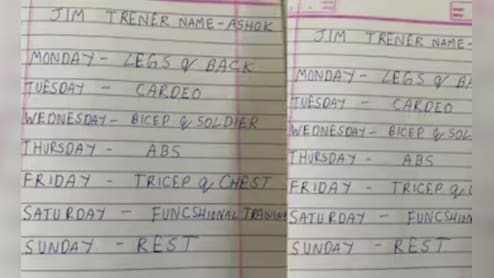 JIM TRENER NAME-ASHOK
MONDAY - LEGS & BACK
TUESDAY - CARDEO
WEDNESDAY - BICEP & SOLDIER
THURSDAY - ABS
FRIDAY - TRICEP & CHEST
SATURDAY - FUNCSHIONAL TRAINING
SUNDAY - REST
JIM TRENER NAME-
MONDAY - LEGS & BA
TUESDAY - CARDEO
WEDNESDAY - BICEP & SOL
THURSDAY - ABS
FRIDAY - TRICEP & C
SATURDAY - FUNCSHION
SUNDAY - REST